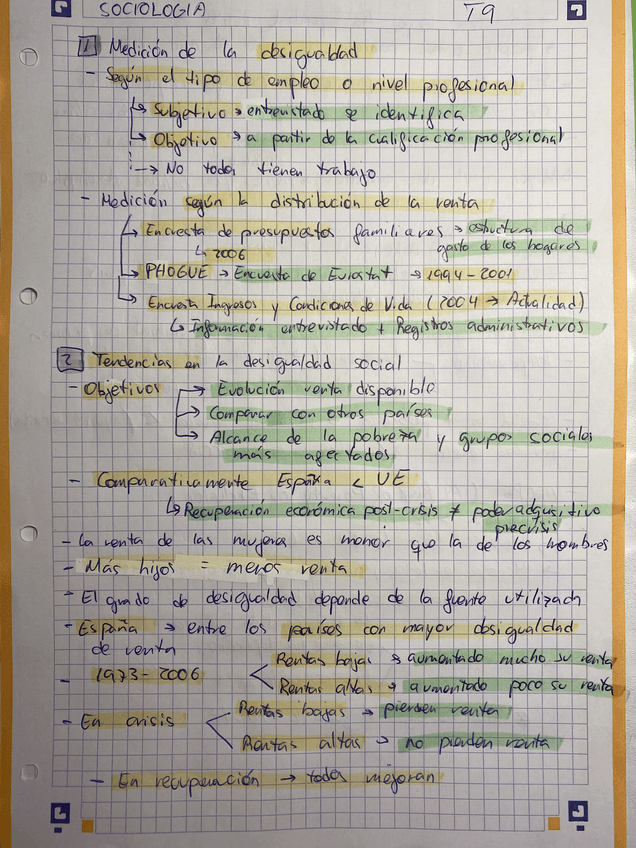 SOCIOLOGIA T9
1 Medición de la desigualdad
- Según el tipo de empleo o nivel profesional
↳ Subjetivo → entrevistado se identifica
↳ Objetivo → a partir de la cualificación profesional
--→ No todos tienen trabajo
- Medición según la distribución de la renta
↳ Encuesta de presupuestos familiares → estructura de
gasto de los hogares
↳ 2006
→ PHOGUE → Encuesta de Eurostat → 1994-2001
→ Encuesta Ingresos y Condiciones de Vida (2004 → Actualidad)
↳ Información entrevistado + Registros administrativos
2 Tendencias en la desigualdad social
- Objetivos → Evolución renta disponible
→ Comparar con otros países
→ Alcance de la pobreza y grupos sociales
más afectados
- Comparativamente España < UE
↳ Recuperación económica post-crisis ≠ poder adquisitivo
precrisis
- La renta de las mujeres es menor que la de los hombres
- Más hijos = menos renta
- El grado de desigualdad depende de la fuente utilizada
- España → entre los países con mayor desigualdad
de renta
- 1973-2006 < Rentas bajas → aumentado mucho su renta
Rentas altas → aumentado poco su renta
- En crisis < Rentas bajas → pierden renta
Rentas altas → no pierden renta
- En recuperación → todos mejoran